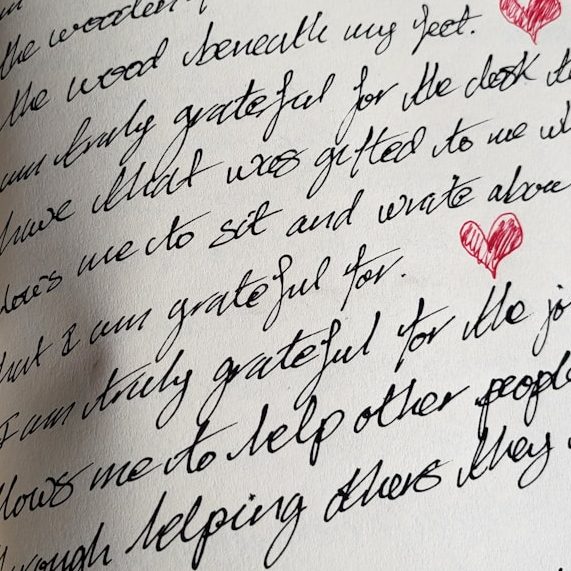 the wooden
the wood beneath my feet.
am truly grateful for the desk
have that was gifted to me
me to sit and write
I am grateful for.
I am truly grateful for the
me to help other
helping others they